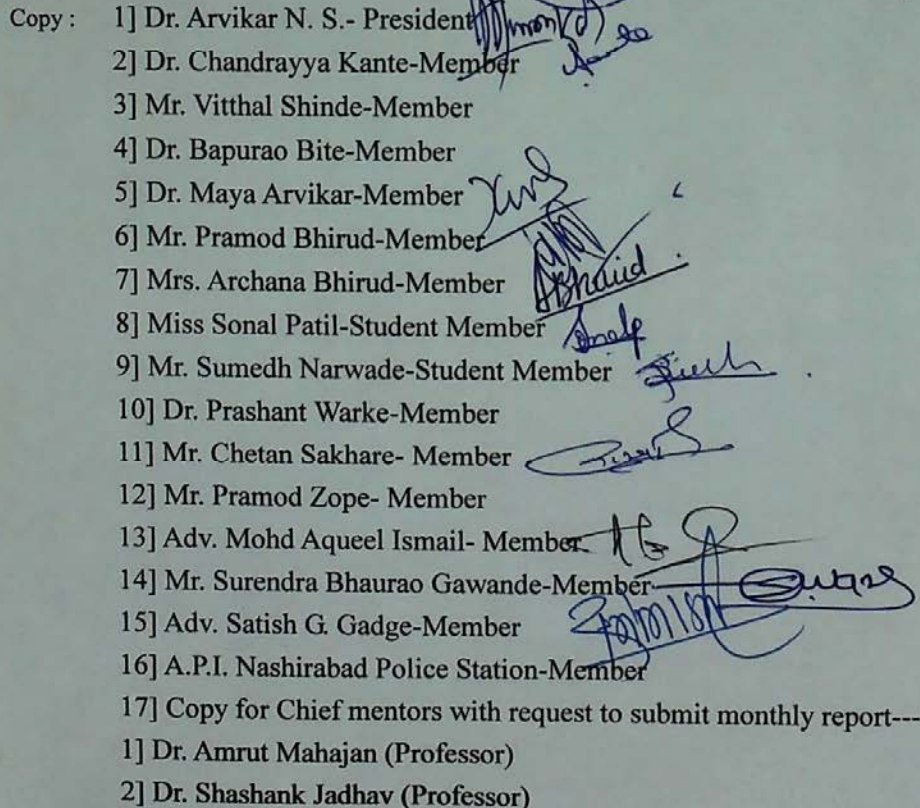 Copy : 1] Dr. Arvikar N. S.- President
2] Dr. Chandrayya Kante-Member
3] Mr. Vitthal Shinde-Member
4] Dr. Bapurao Bite-Member
5] Dr. Maya Arvikar-Member
6] Mr. Pramod Bhirud-Member
7] Mrs. Archana Bhirud-Member
8] Miss Sonal Patil-Student Member
9] Mr. Sumedh Narwade-Student Member
10] Dr. Prashant Warke-Member
11] Mr. Chetan Sakhare- Member
12] Mr. Pramod Zope- Member
13] Adv. Mohd Aqueel Ismail- Member
14] Mr. Surendra Bhaurao Gawande-Member
15] Adv. Satish G. Gadge-Member
16] A.P.I. Nashirabad Police Station-Member
17] Copy for Chief mentors with request to submit monthly report---
1] Dr. Amrut Mahajan (Professor)
2] Dr. Shashank Jadhav (Professor)